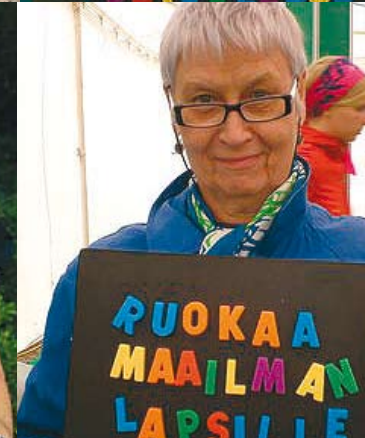 RUOKAA
MAAILMAN
LAPSILLE